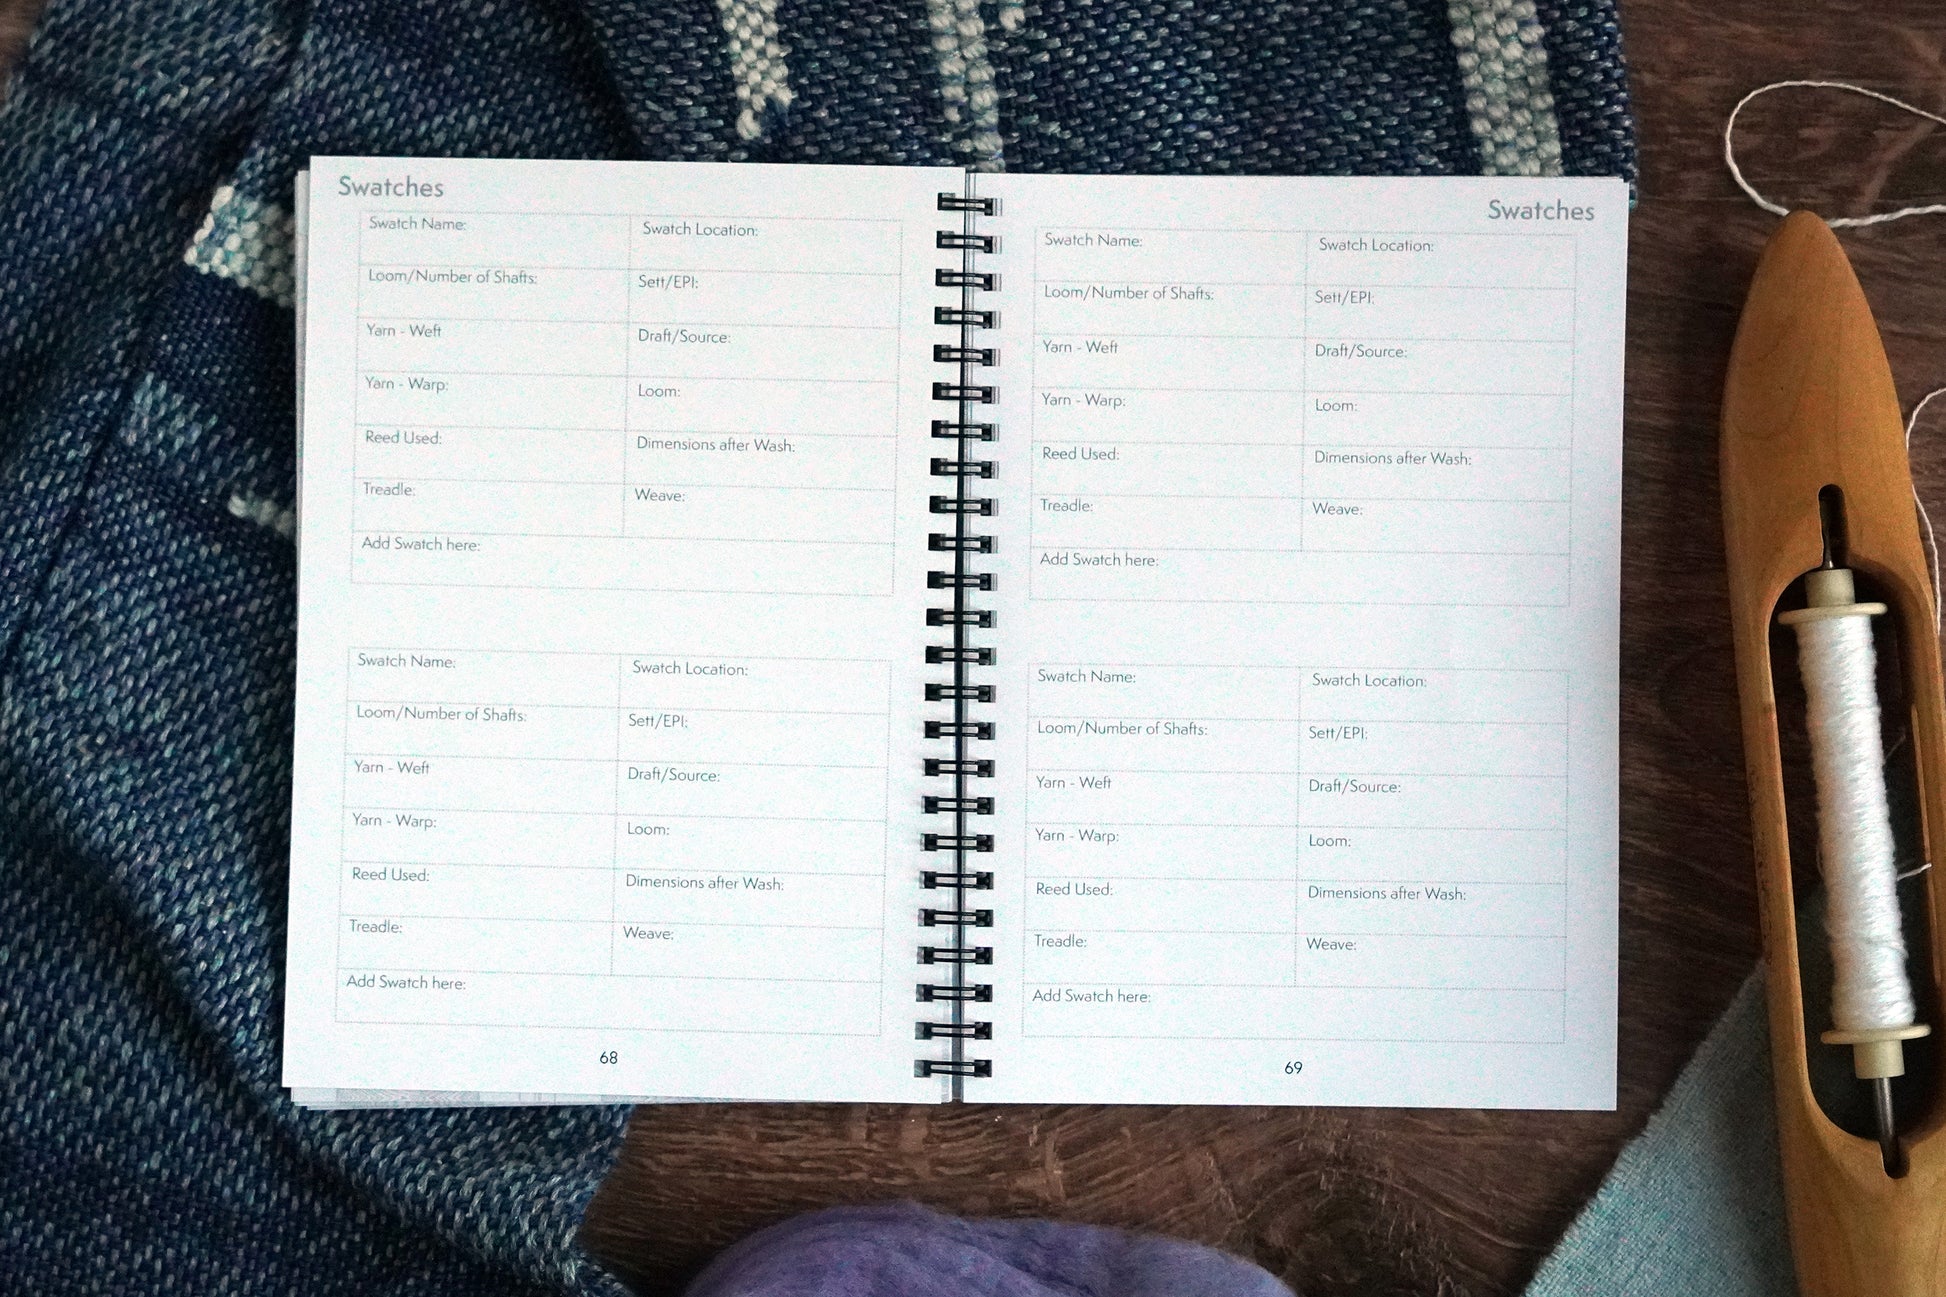 Swatches
Swatch Name: Swatch Location:
Loom/Number of Shafts: Sett/EPI:
Yarn - Weft Draft/Source:
Yarn - Warp: Loom:
Reed Used: Dimensions after Wash:
Treadle: Weave:
Add Swatch here:
Swatch Name: Swatch Location:
Loom/Number of Shafts: Sett/EPI:
Yarn - Weft Draft/Source:
Yarn - Warp: Loom:
Reed Used: Dimensions after Wash:
Treadle: Weave:
Add Swatch here:
68
Swatches
Swatch Name: Swatch Location:
Loom/Number of Shafts: Sett/EPI:
Yarn - Weft Draft/Source:
Yarn - Warp: Loom:
Reed Used: Dimensions after Wash:
Treadle: Weave:
Add Swatch here:
Swatch Name: Swatch Location:
Loom/Number of Shafts: Sett/EPI:
Yarn - Weft Draft/Source:
Yarn - Warp: Loom:
Reed Used: Dimensions after Wash:
Treadle: Weave:
Add Swatch here:
69